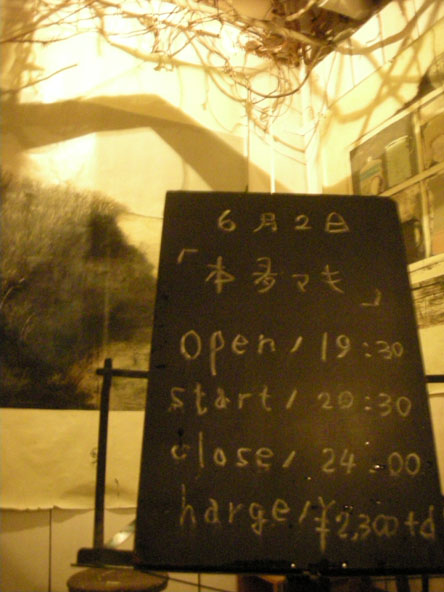 6月2日
「本多マキ」
open/19:30
start/20:30
close/24:00
harge/¥2,300+d